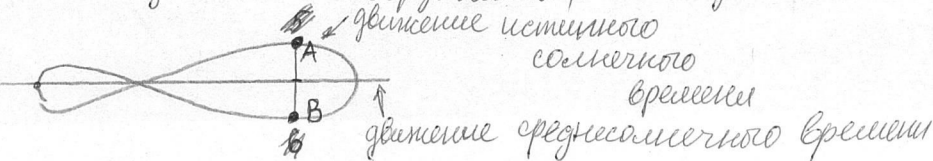 движение истинного
солнечного
времени
A
B
движение среднесолнечного времени